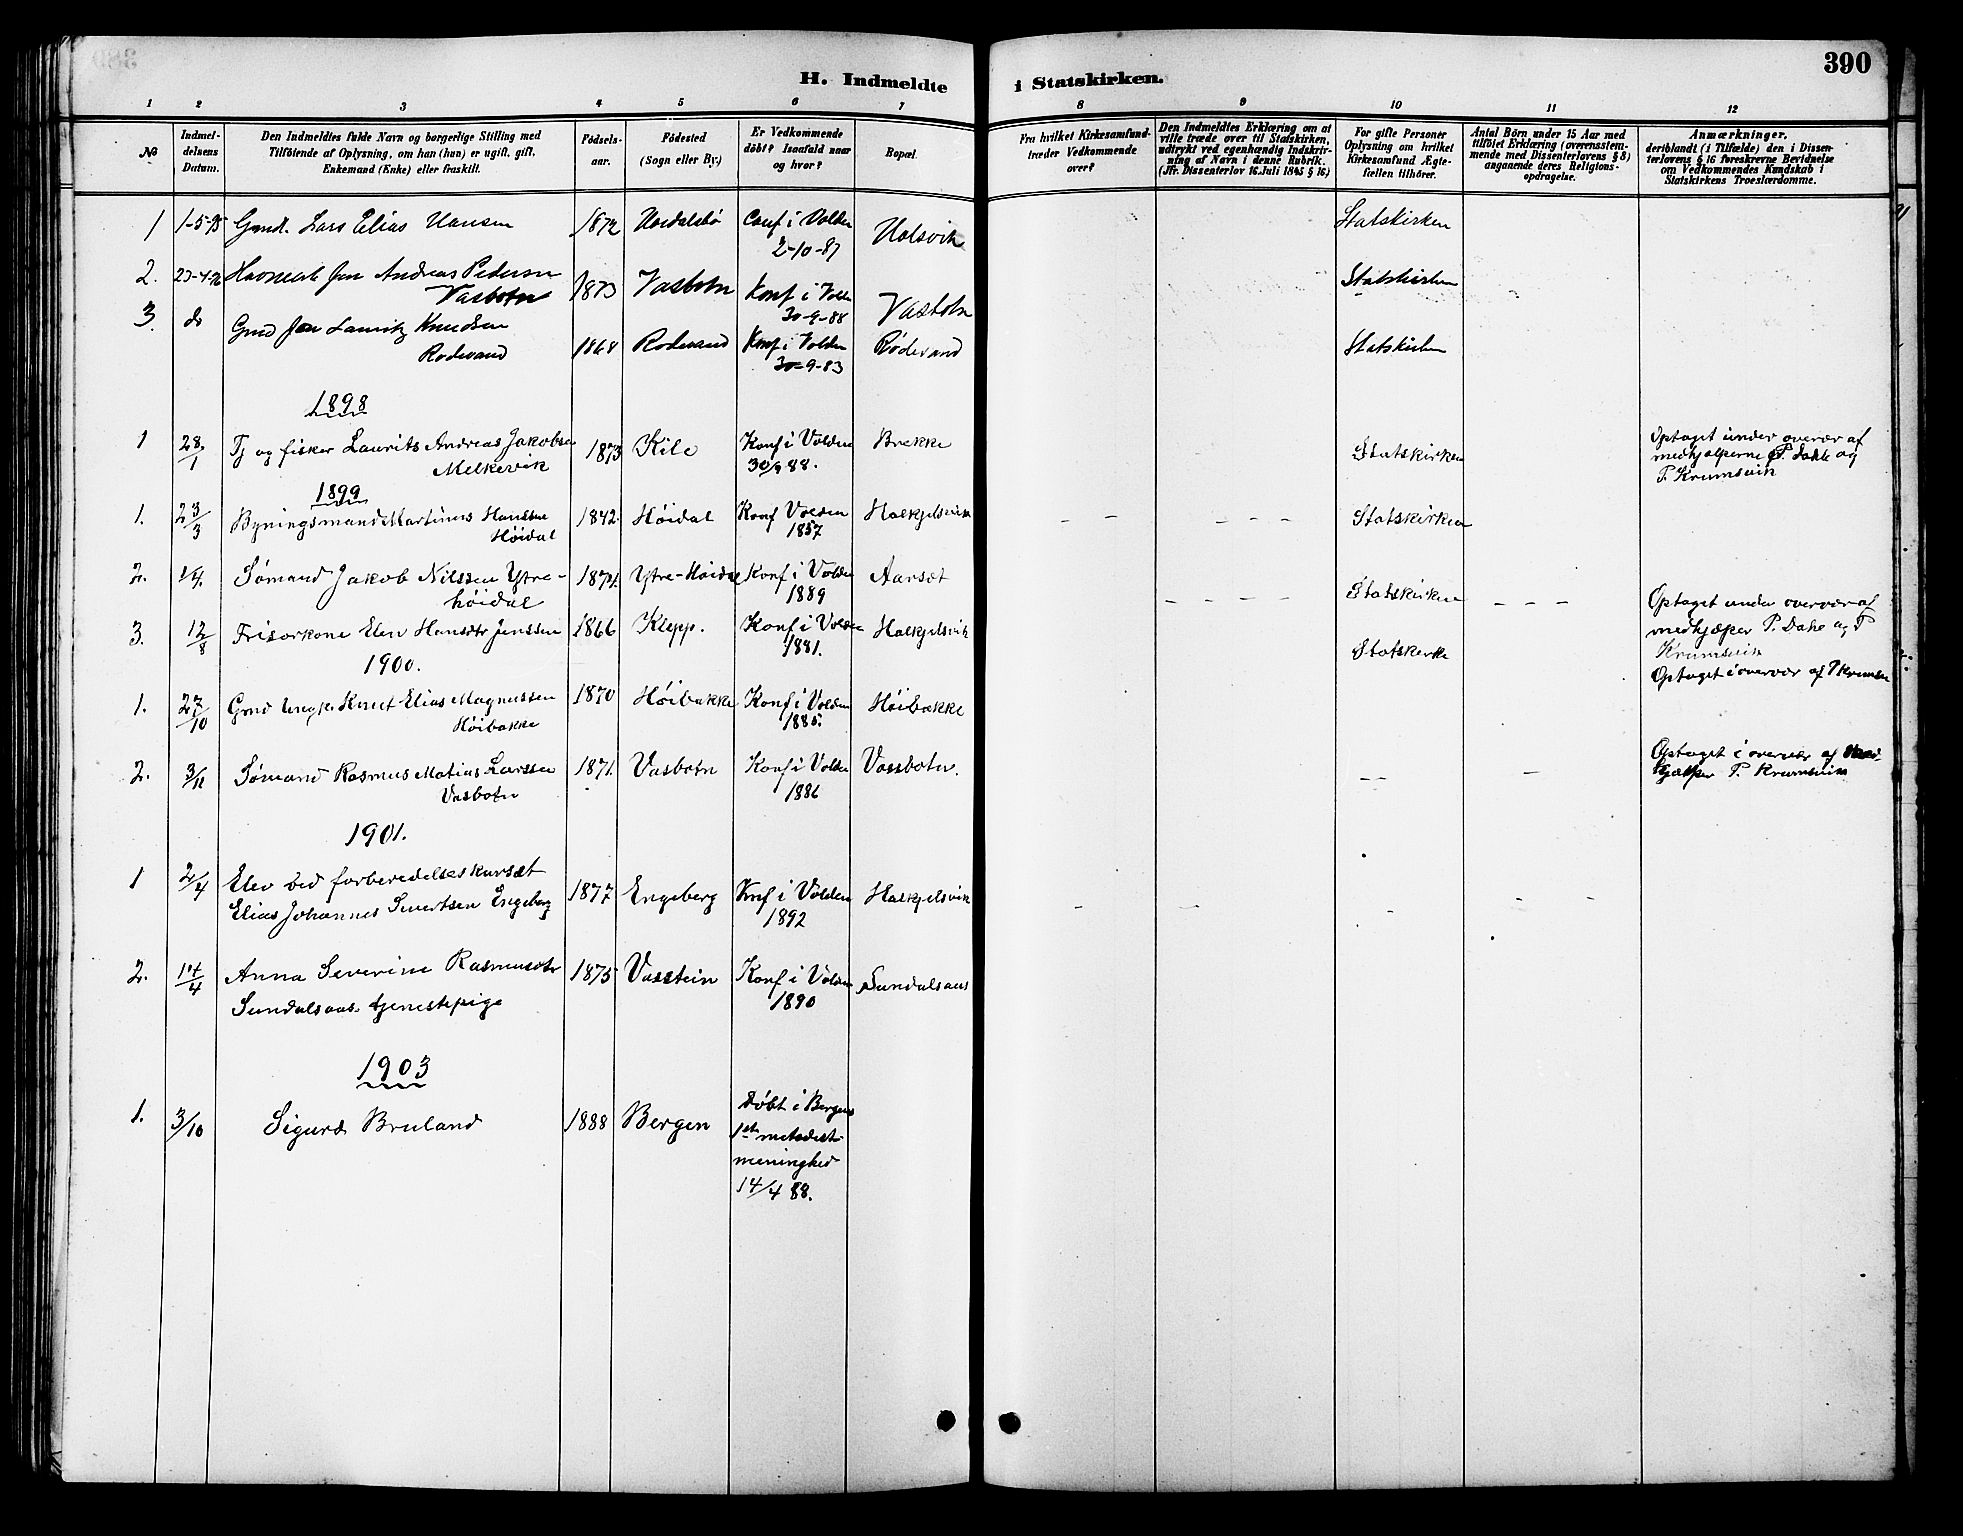 390
H. Indmeldte i Statskirken.
1 2 3 4 5 6 7 8 9 10 11 12
No
Indmel-
delsens
Datum.
Den Indmeldtes fulde Navn og borgerlige Stilling med
Tilföiende af Oplysning, om han (hun) er ugift, gift,
Enkemand (Enke) eller fraskilt.
Födsels-
aar.
Födested
(Sogn eller By.)
Er Vedkommende
döbt? Isaafald naar
og hvor?
Bopæl.
Fra hvilket Kirkesamfund
træder Vedkommende
over?
Den Indmeldtes Erklæring om at
ville træde over til Statskirken,
udtrykt ved egenhændig Indskriv-
ning af Navn i denne Rubrik.
(Jfr. Dissenterlov 16. Juli 1845 § 16)
For gifte Personer
Oplysning om hvilket
Kirkesamfund Ægte-
fællen tilhörer.
Antal Börn under 15 Aar med
tilföiet Erklæring (overensstem-
mende med Dissenterlovens § 8)
angaaende deres Religions-
opdragelse.
Anmærkninger,
deriblandt (i Tilfælde) den i Dissen-
terlovens § 16 foreskrevne Bevidnelse
om Vedkommendes Kundskab i
Statskirkens Troeslærdomme.
1 1-5-95 Gmd. Lars Elias Hansen 1872 Conf i Volden Statskirken
2-10-87
2. 23-4-96 Andreas Pedersen 1873 Vasbotn Konf i Volden Vasbotn Statskirken
Vasbotn 30-9-88
3 do Gmd Lauritz Knudsen
Rodevand 1868 Rodevand Konf i Volden Rødevand Statskirken
30-9-83
1898
1 28/1 Tj og fisker Laurits Andreas Jakobsen 1873 Kile Konf i Volden Brekke Statskirken Optaget under overvær af
Melkevik 30/9 88. medhjælperne P. Dahle og
P. Krumsvik
1899
1. 23/3 Bygningsmand Martinus Hanssen 1842 Høidal Konf Volden Halkjelsvik Statskirken
Høidal 1857
2. Sømand Jakob Nilssen Ytre- Ytre-Høidal Konf i Volden Aarset Statskirken Optaget under overvær af
høidal 1889 medhjæper P. Dahe og P
Krumsvik
3. 12/8 Frisørkone Elen Hansdtr Jenssen 1866 Klepp. Konf i Volden Halkjelsvik Statskirke Optaget i overvær af P Krumsvik
1881.
1900.
1. 27/10 Gmd Ungk. Knut Elias Magnussen 1870 Høibakke Konf i Volden Høibakke
Høibakke 1885.
2. 3/11 Sømand Rasmus Matias Larssen 1871. Vasbotn Konf i Volden Vassbotn. Optaget i overvær af Med-
Vasbotn 1886 hjælper P. Krumsvik
1901.
1 2/4 Elev ved forberedelseskurset
Elias Johannes Sivertsen Engeberg 1877 Engeberg Konf i Volden Halkjelsvik
1892
2. 14/4 Anna Severine Rasmusdtr 1875 Vasstein Konf i Volden Sundalsaas
Sundalsaas tjenestepige 1890
1903
1. 3/10 Sigurd Bruland 1888 Bergen Døbt i Bergens
1st metodist-
meninghed
14/4 88.